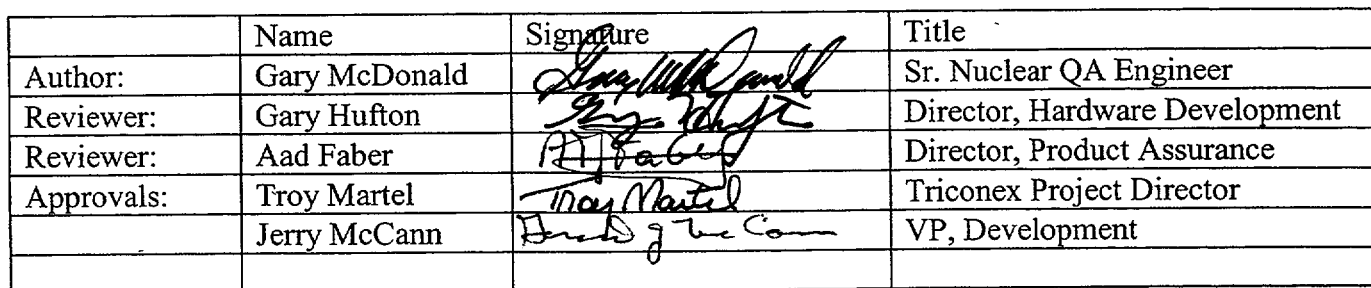 Name Signature Title
Author: Gary McDonald Gary McDonald Sr. Nuclear QA Engineer
Reviewer: Gary Hufton Gary Hufton Director, Hardware Development
Reviewer: Aad Faber Faber Director, Product Assurance
Approvals: Troy Martel Troy Martel Triconex Project Director
Jerry McCann Gerald J McCann VP, Development